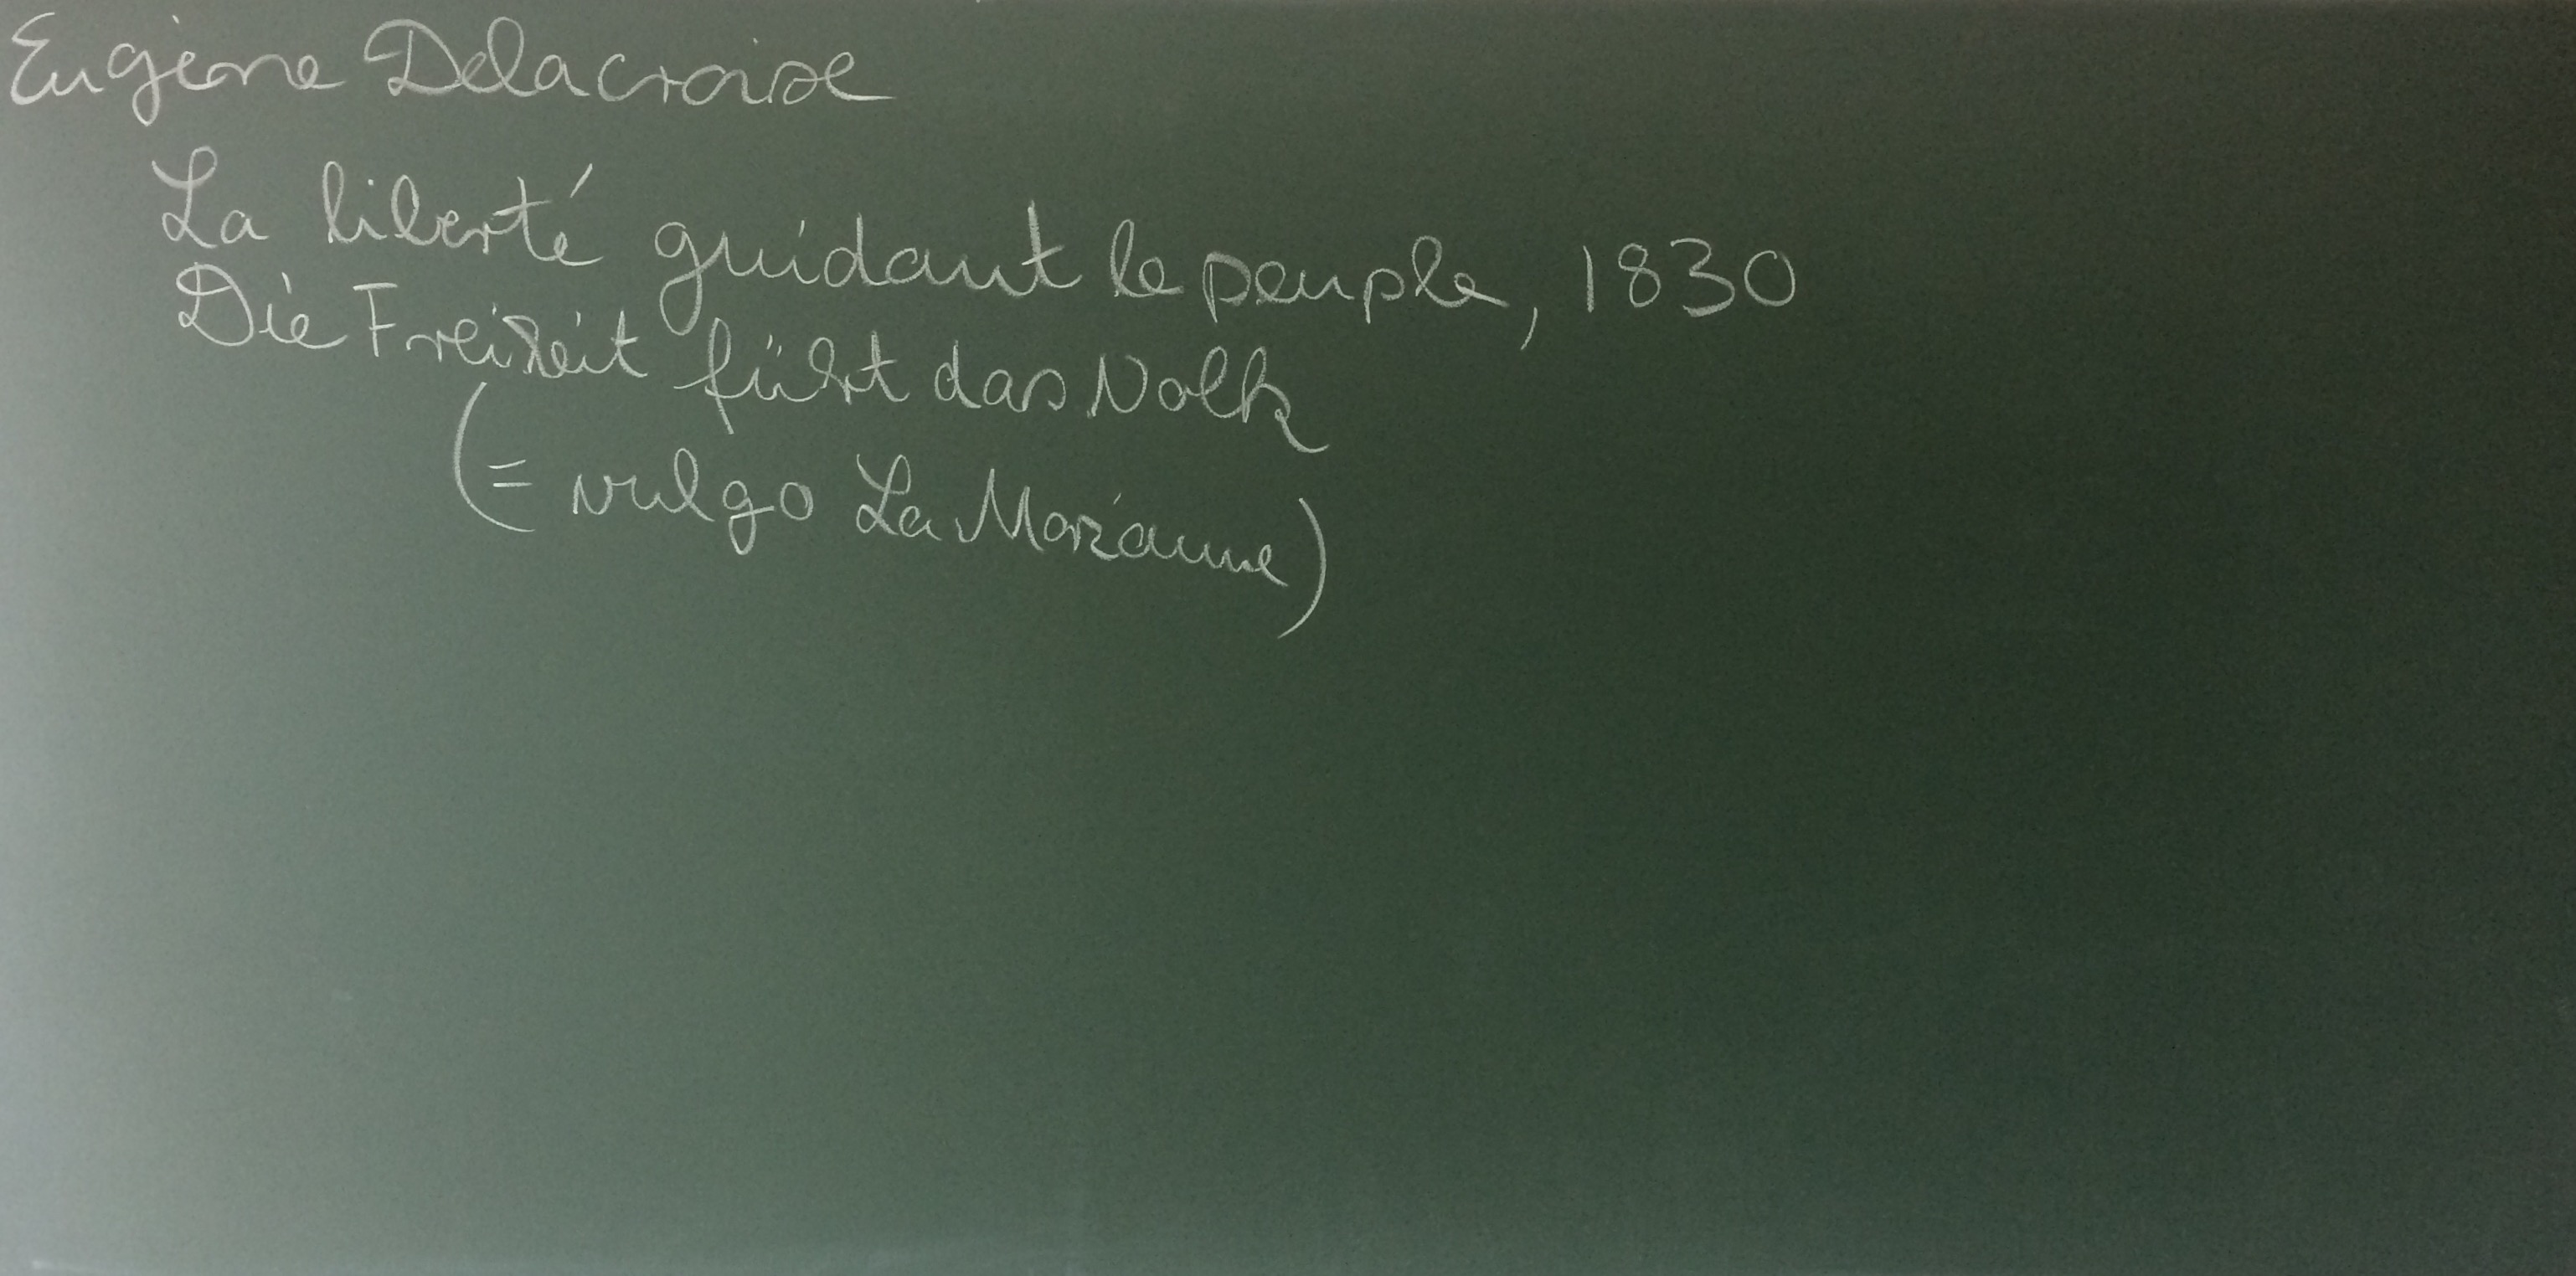 Eugène Delacroix
La liberté guidant le peuple, 1830
Die Freiheit führt das Volk
(= vulgo La Marianne)